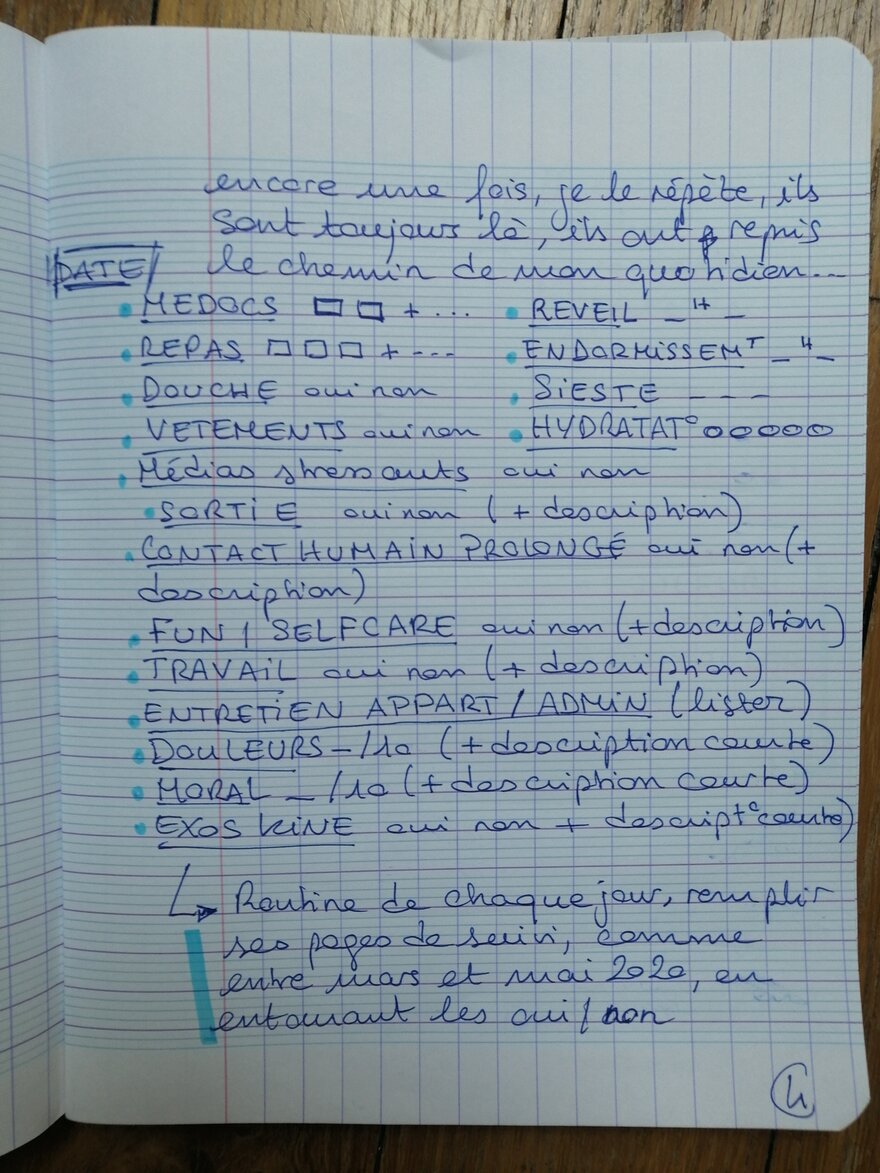 encore une fois, je le répète, ils
sont toujours là, ils ont repris
DATE le chemin de mon quotidien...
• MEDOCS □ □ + ... • REVEIL _H_
• REPAS □ □ □ + --- • ENDORMISSEMT _H_
• DOUCHE oui non • SIESTE ---
• VETEMENTS oui non • HYDRATAT° OOOOO
• Médias stressants oui non
• SORTIE oui non (+ description)
• CONTACT HUMAIN PROLONGÉ oui non (+
description)
• FUN / SELFCARE oui non (+ description)
• TRAVAIL oui non (+ description)
• ENTRETIEN APPART / ADMIN (lister)
• DOULEURS _/10 (+ description courte)
• MORAL _/10 (+ description courte)
• EXOS KINE oui non + descript° courte)
↳ Routine de chaque jour, remplir
ses pages de suivi, comme
entre mars et mai 2020, en
entourant les oui/non
4